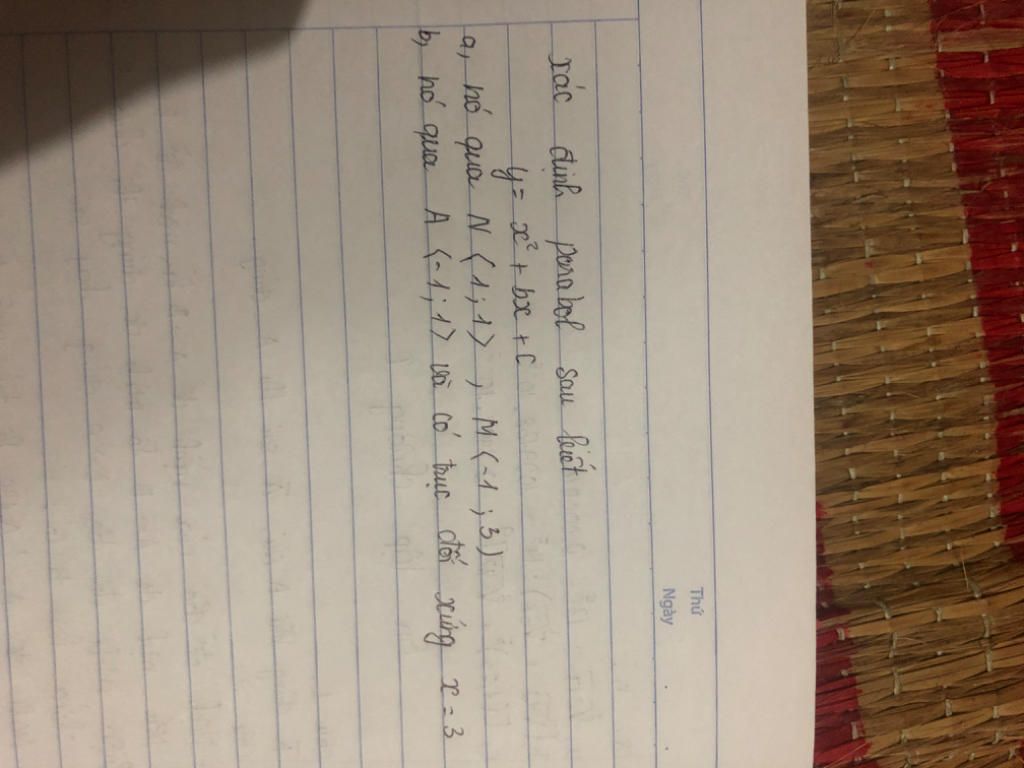 Thứ
Ngày
xác định parabol sau biết
y = x² + bx + c
a, nó qua N (1;1) , M (-1;3)
b, nó qua A (-1;1) và có trục đối xứng x = 3